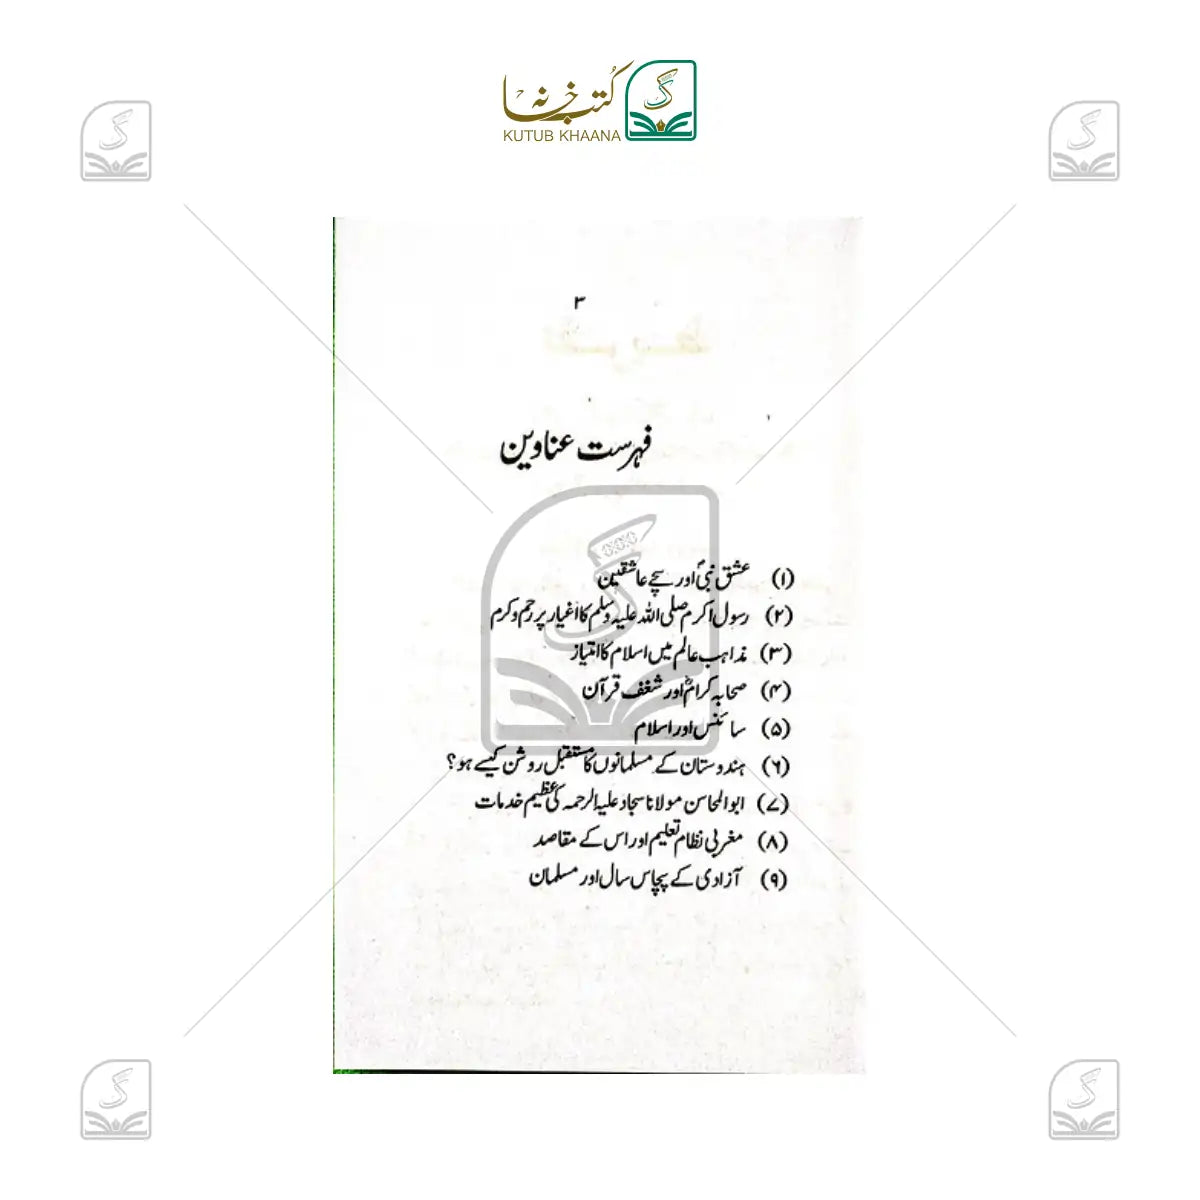 کتب خانہ
KUTUB KHAANA
۳
فہرست عناوین
(۱) عشق نبیؐ اور سچے عاشقین
(۲) رسول اکرم صلی اللہ علیہ وسلم کا اغیار پر رحم و کرم
(۳) مذاہب عالم میں اسلام کا امتیاز
(۴) صحابہ کرامؓ اور شغف قرآن
(۵) سائنس اور اسلام
(۶) ہندوستان کے مسلمانوں کا مستقبل روشن کیسے ہو؟
(۷) ابوالمحاسن مولانا سجاد علیہ الرحمہ کی عظیم خدمات
(۸) مغربی نظام تعلیم اور اس کے مقاصد
(۹) آزادی کے پچاس سال اور مسلمان